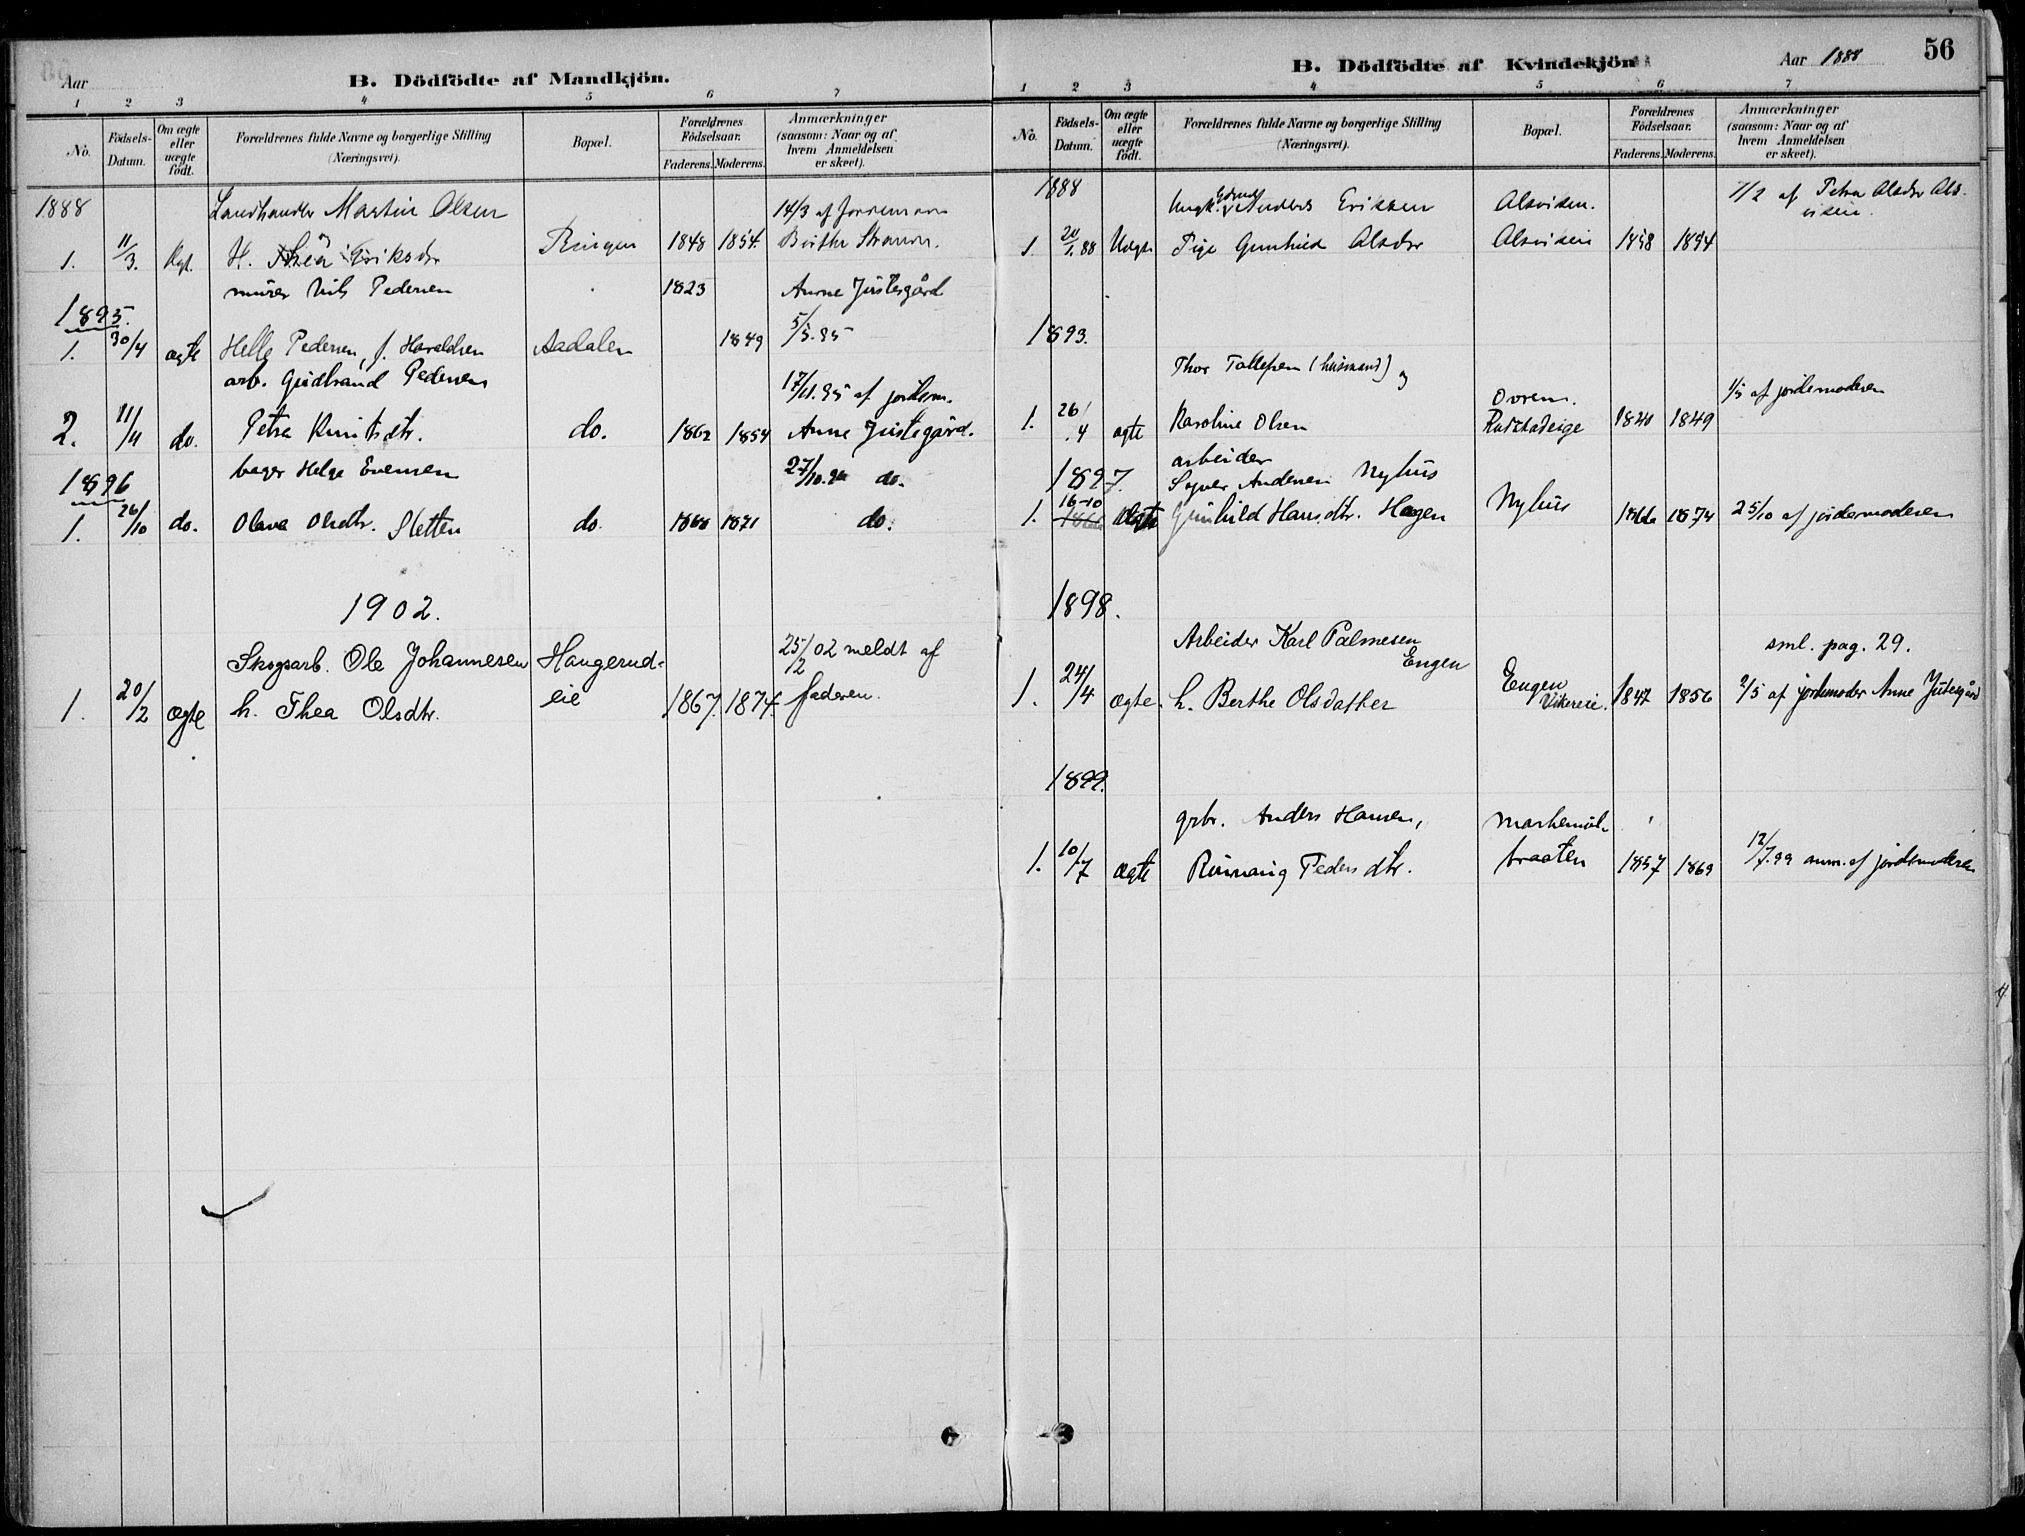 Aar
B. Dödfödte af Mandkjön.
1 2 3 4 5 6 7
No. Födsels-Datum. Om ægte eller uægte födt. Forældrenes fulde Navne og borgerlige Stilling (Næringsvei). Bopæl. Forældrenes Födselsaar. Faderens. Moderens. Anmærkninger (saasom: Naar og af hvem Anmeldelsen er skeet).
1888 Landhandler Martin Olsen 14/3 af
1. 11/3. Ægt. H. Eriksdr Ringen 1848 1854 Birthe
murer Nils Pedersen 1823 Anne Justesgård
1895. 5/5.95
1. 30/4 ægte Helle Pedersen, f. Haraldsen Aadalen 1849
arb. Gudbrand Pedersen 17/11.95 af jordem.
2. 11/11 do. Petra Knutsdtr. do. 1862 1854 Anne Justegård.
1896 bager Helge Evensen 27/10.96 do.
1. 26/10 do. Olava Olsdtr. Sletten do. 1868 1871 do.
1902.
Skogsarb. Ole Johannesen Haugerud- 25/2 02 meldt af
1. 20/2 ægte h. Thea Olsdtr. eie 1867. 1874. faderen.
B. Dödfödte af Kvindekjön
Aar 1888
56
1 2 3 4 5 6 7
No. Födsels-Datum. Om ægte eller uægte födt. Forældrenes fulde Navne og borgerlige Stilling (Næringsvei). Bopæl. Forældrenes Födselsaar. Faderens. Moderens. Anmærkninger (saasom: Naar og af hvem Anmeldelsen er skeet).
1888 Ungk. Anders Eriksen Alsviken. 7/2 af Petra Olsdr Als-
viken.
1. 20/1.88 Uægte Pige Gunhild Olsdr Alsviken 1858 1854
1893.
Thor Tollefsen (husmand) og
1. 26/4 ægte Karoline Olsen Rudstadeige 1840 1849 1/5 af jordemoderen
1897. arbeider
Syver Andersen Nyhus
1. 16-10 Ægte Gunhild Hansdtr. Hagen Nyhus 1866 1874 25/10 af jordemoderen
1898.
Arbeider Karl Palmesen Engen sml. pag. 29.
1. 24/4 ægte. h. Berthe Olsdatter Engen Vikereie. 1847 1856 2/5 af jordemoder Anne Jutesgård
1899.
grbr. Anders Hansen,
1. 10/7 ægte Rønnaug Pedersdtr. braaten 1857 1869 12/7.99 anm. af jordemoderen